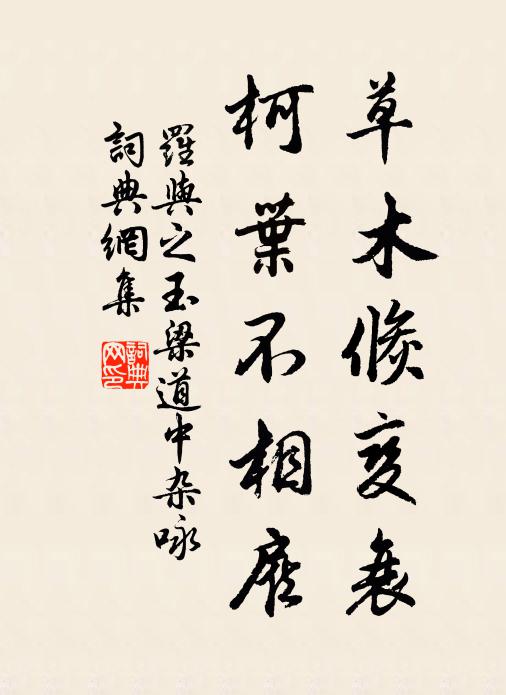 草木倏变衰
柯葉不相庇
羅與之玉梁道中杂咏
詞典網集
詞典网印